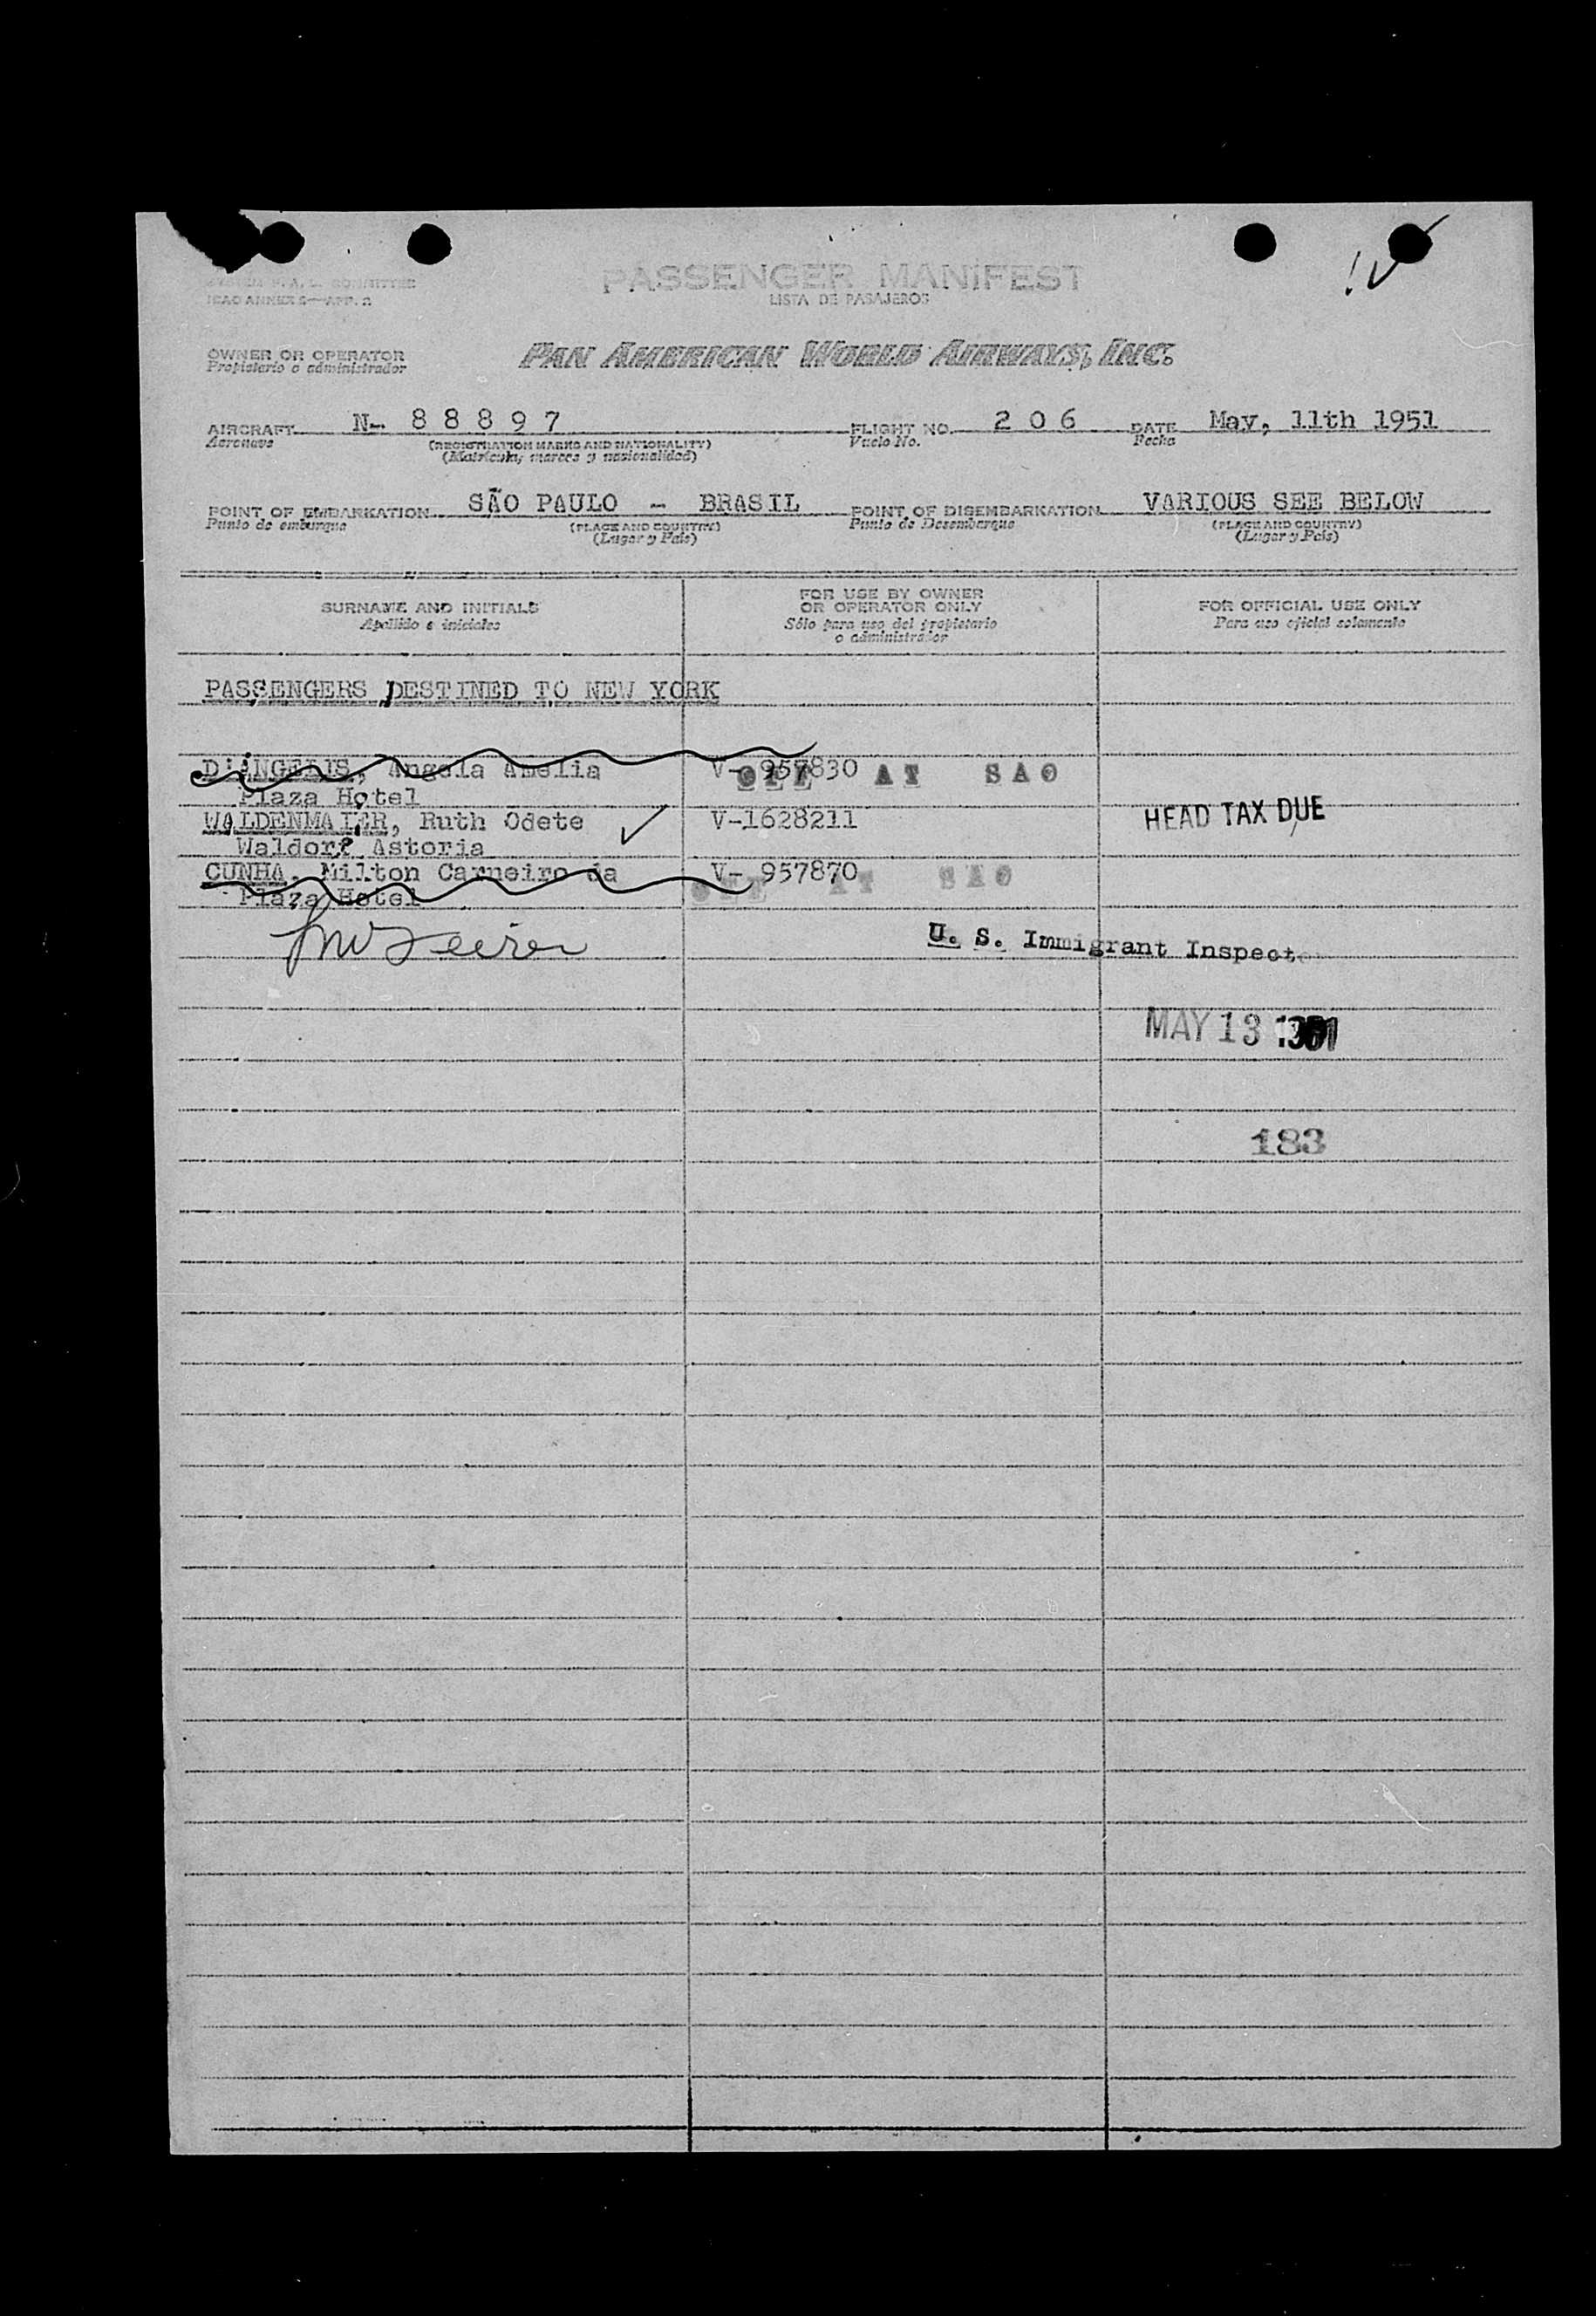 PASSENGER MANIFEST
LISTA DE PASAJEROS
ICAO ANNEX 9—APP. 2
OWNER OR OPERATOR
Propietario o administrador
PAN AMERICAN WORLD AIRWAYS, INC.
AIRCRAFT N- 8 8 8 9 7 FLIGHT NO. 2 0 6 DATE May, 11th 1951
Aeronave (REGISTRATION MARKS AND NATIONALITY) Vuelo No. Fecha
(Matrícula, marcas y nacionalidad)
POINT OF EMBARKATION SÃO PAULO - BRASIL POINT OF DISEMBARKATION VARIOUS SEE BELOW
Punto de embarque (PLACE AND COUNTRY) Punto de Desembarque (PLACE AND COUNTRY)
(Lugar y País) (Lugar y País)
SURNAME AND INITIALS FOR USE BY OWNER OR OPERATOR ONLY FOR OFFICIAL USE ONLY
Apellido e iniciales Sólo para uso del propietario o administrador Para uso oficial solamente
PASSENGERS DESTINED TO NEW YORK
D'ANGELIS, Angela Amelia V- 957830 OFF AT SAO
Plaza Hotel
WALDENMAIER, Ruth Odete V-1628211 HEAD TAX DUE
Waldorf Astoria
CUNHA, Milton Carneiro da V- 957870 OFF AT SAO
Plaza Hotel
U. S. Immigrant Inspector
MAY 13 1951
183